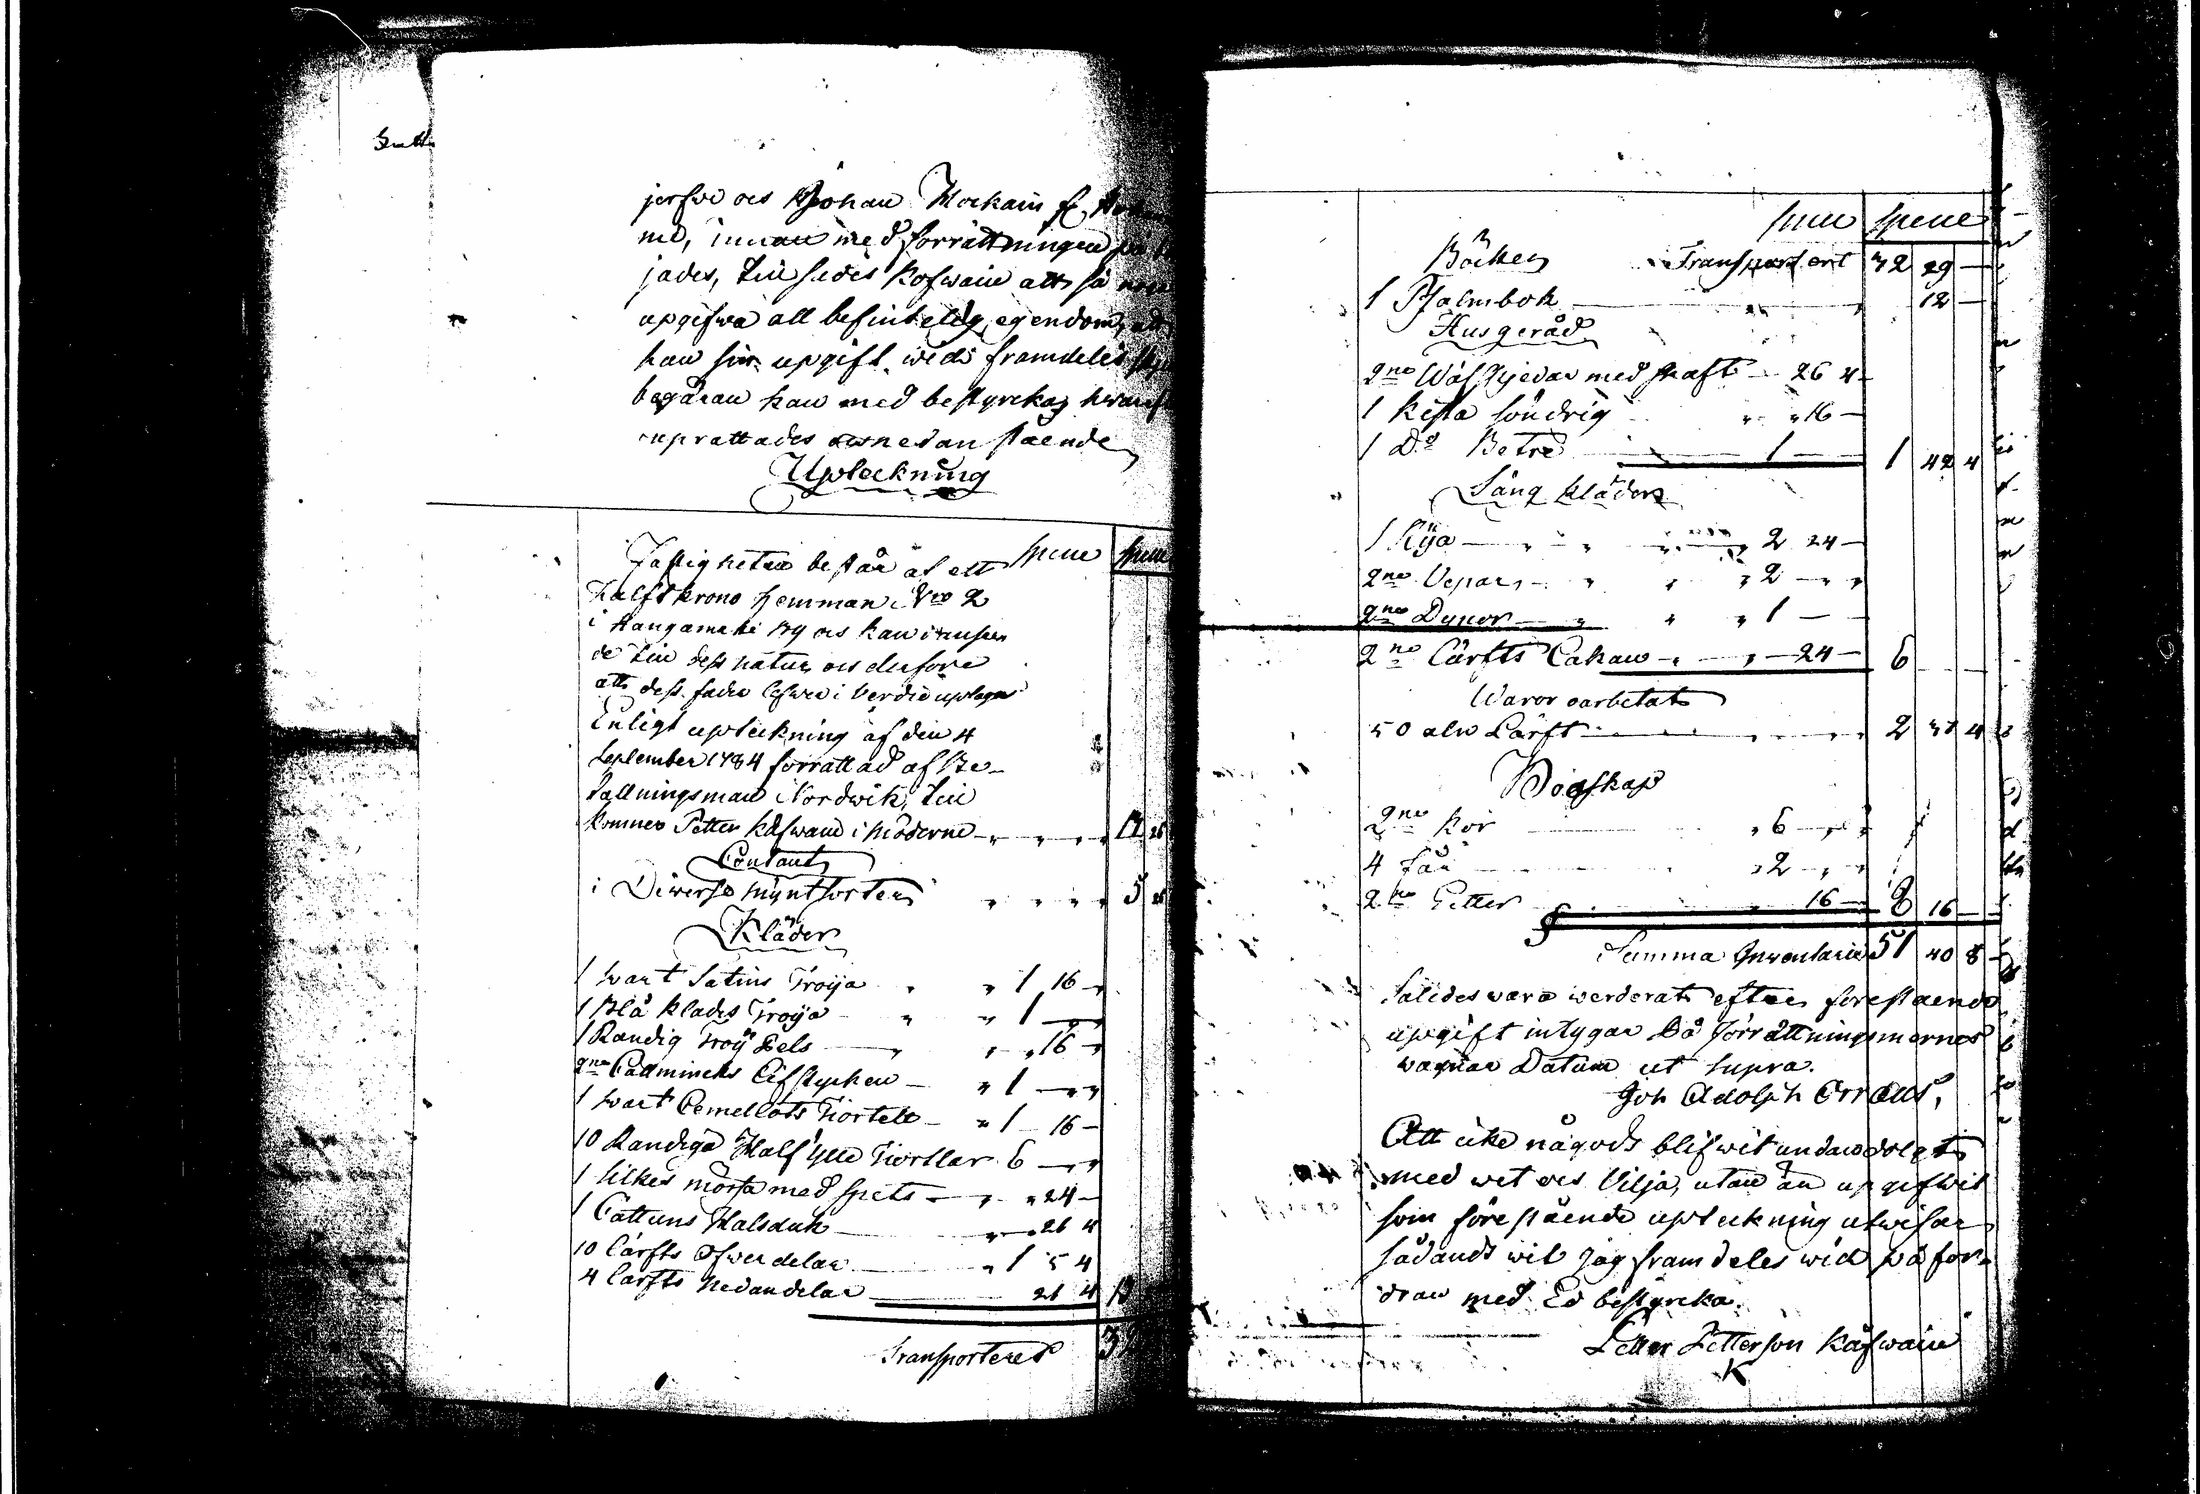 jerfwi oes Johan Mockain
me, innan med förrättningen
jades, Till sades Kofwain att så
upgifwa all befinteliq egendom, att
han sin upgift wid framdeles
begäran kan med bestyrkas hwar
uprattades nedan stående
Upteckning
Fastigheten består af ett Specie Specie
halft krono hemman Nro 2
i Kangamaki By och kan i ansen
de till dess natur och derföre
att dess fader lefwer i Verdie uptagas
Enligt upteckning af den 4
September 1784 forrattad af Be-
fallningsman Nordwik, till
kommer Petter Käfwane i Möderne 12 26
Contant
i Diverse myntsorter 5
Kläder
1 swart Satins Tröija 1 16
1 Blå Klädes Tröija 1
1 Randig Tröij Pels 16
2ne Callmincks Lifstycken 1
1 swart Cemellots Kiortell 1 16
10 Randiga Half ylle Kiortlar 6
1 Silkes mössa med Spets 24
1 Cattuns Halsduk 26 4
10 Lärfts Ofwerdelar 1 5 4
4 Lärfts Nedandelar 21 4 13
Transporteres 32
Specie Specie
Böcker Transportert 32 29
1 Psalmbok 12
Husgeråd
2ne Wäfskjedar med skaft 26 4
1 Kista söndrig 16
1 Do Betre 1 1 42 4
Säng kläder
1 Rya 2 24
2ne Vepar 2
2ne Dynor 1
2ne Lärfts Lakan 24 6
Waror oarbetat
50 aln Lärft 2 37 4
Boskap
2ne Kor 6
4 Får 2
2ne Getter 16 8 16
Summa Inventarii 51 40 8
Således wara werderat efter forestaende
upgift intygar Då Förrättningsmannes
wagnar Datum ut supra.
Joh Adolph Orræus,
Att icke någods blifwit undandolgt
med wet oes Vilja, utan än upgifwit
som förestående upteckning utwisar
sådands wil jag framdeles wid påfor-
dran med Ed bestyrcka.
Petter Petterson Käfwain
K